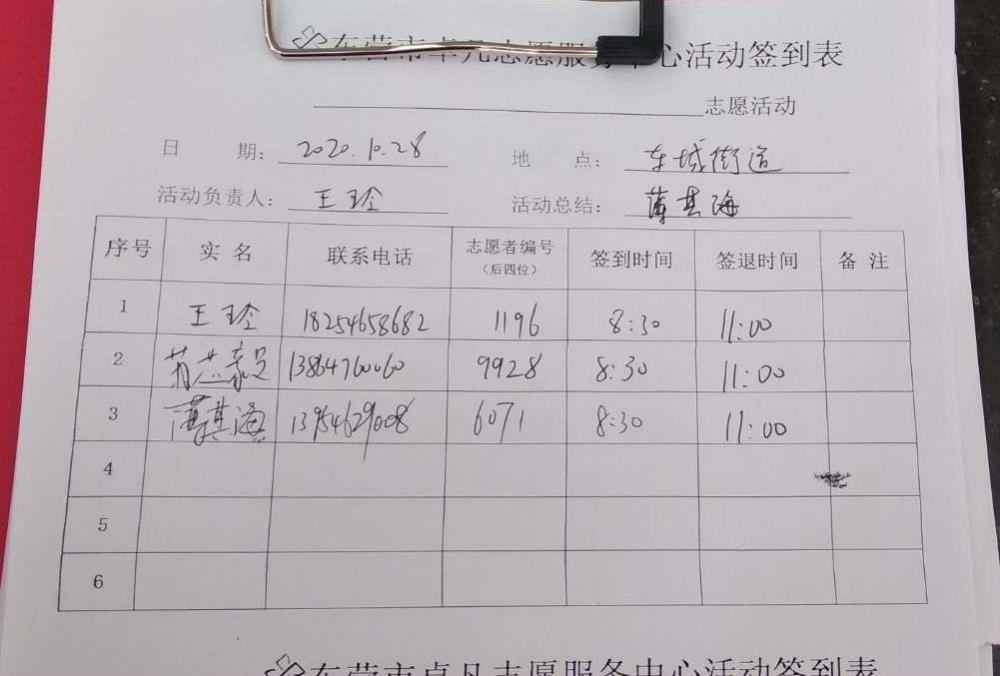 东营市卓凡志愿服务中心活动签到表
志愿活动
日 期: 2020.10.28 地 点: 东城街道
活动负责人: 王玲 活动总结: 薄其海
序号 实名 联系电话 志愿者编号(后四位) 签到时间 签退时间 备注
1 王玲 18254658682 1196 8:30 11:00
2 13864760060 9928 8:30 11:00
3 薄其海 13954629008 6071 8:30 11:00
4
5
6
东营市卓凡志愿服务中心活动签到表